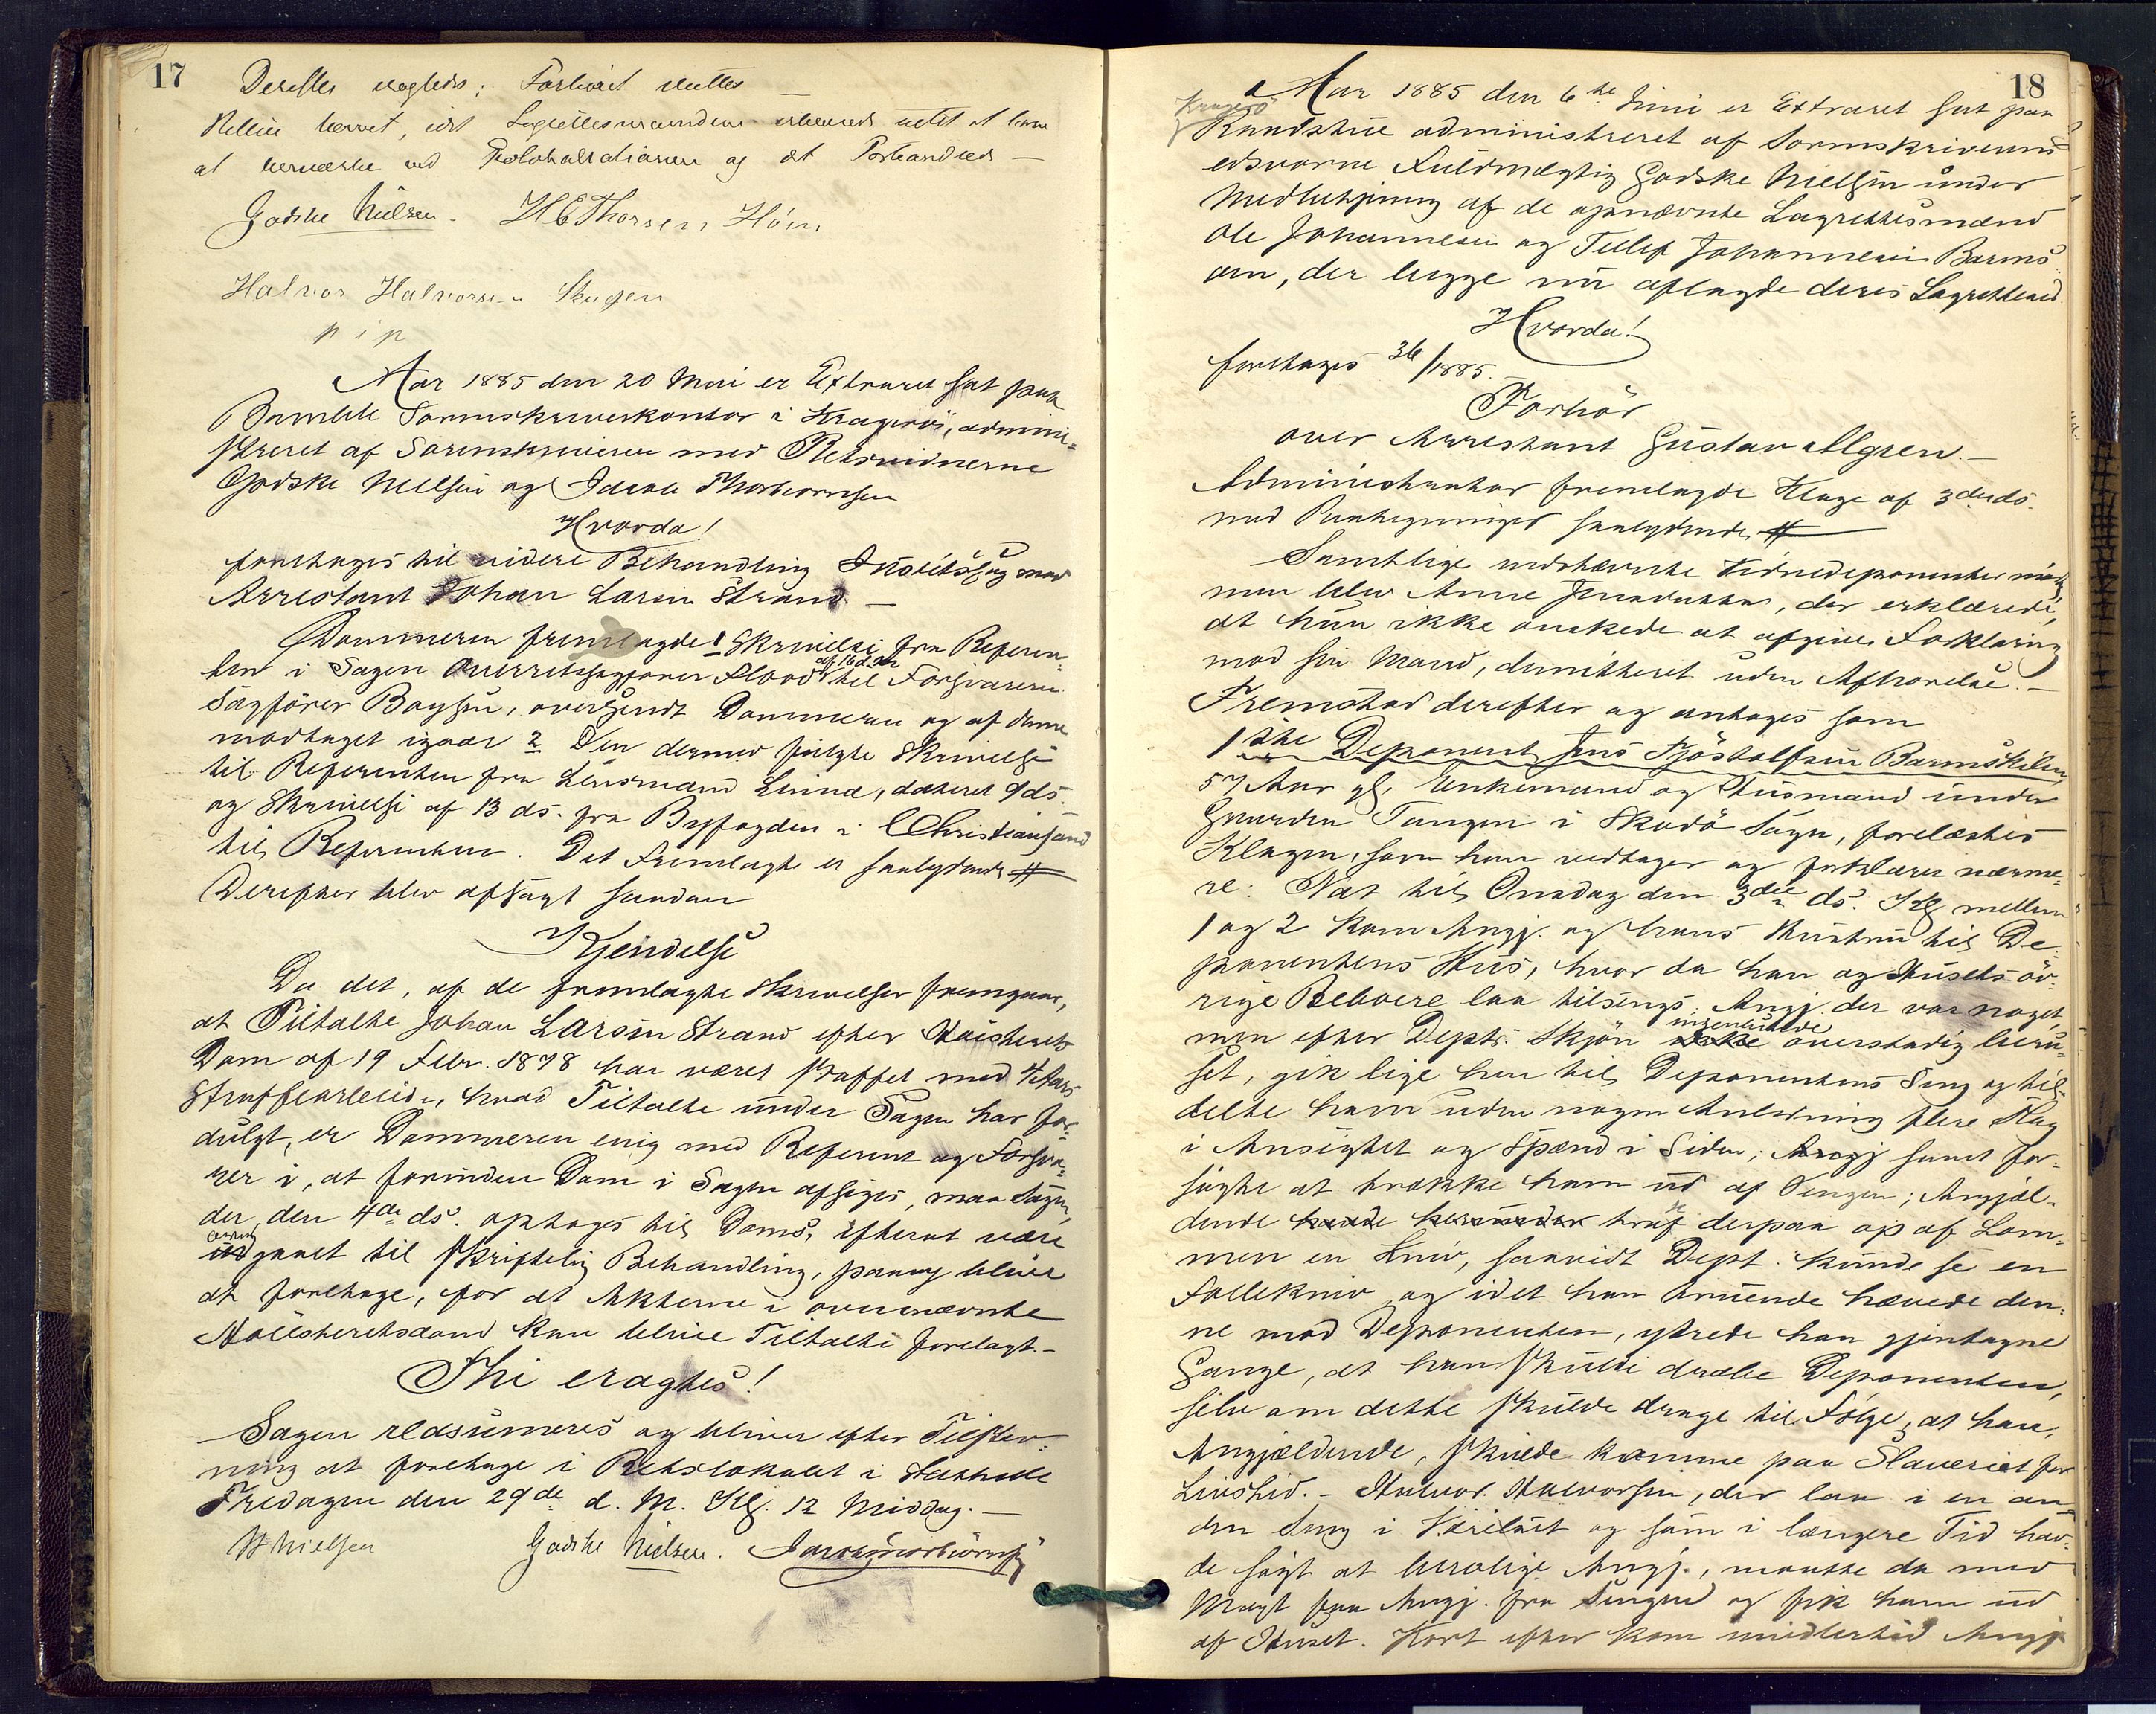 17
Derefter eragtedes: Forhöret sluttes —
Retten hævet, idet Lagrettesmændene
at ved og at Forhandled —
Godske Nielsen. H E Thorsen Höin
Halvor Halvorsen Skugen
p i p
Aar 1885 den 20 Mai er Extraret sat paa
Bamble Sorenskriverkontor i Kragerö, admini-
streret af Sorenskriveren med Retsvidnerne
Godske Nielsen og Thorbiörnsen
Hvorda!
foretages til videre Behandling Justitssag mod
Arrestant Johan Larsen Strand. —
Dommeren fremlagde 1 Skrivelse fra Referen-
ten i Sagen Overretssagförer Flood af 16 d. M. til Forsvareren
Sagförer Boysen, oversendt Dommeren og af denne
modtaget igaar 2 Den dermed fulgte Skrivelse
til Referenten fra Lensmand Lunna, dateret 9 ds.
og Skrivelse af 13 ds. fra Byfogden i Christiansand
til Referenten. Det Fremlagte er saalydende #
Derefter blev afsagt saadan
Kjendelse
Da det, af de fremlagte Skrivelser fremgaar,
at Tiltalte Johan Larsen Strand efter Höiesterets
Dom af 19 Febr. 1878 har været straffet med 4 Aars
Strafarbeide, hvad Tiltalte under Sagen har for-
dulgt, er Dommeren enig med Referent og Forsva-
rer i, at forinden Dom i Sagen afsiges, maa Sagen,
der, den 4de ds. optoges til Doms, efterat være
overgaaet til skriftelig Behandling, paany blive
at foretage, for at Akterne i overnævnte
Höiesteretsdom kan blive Tiltalte forelagt. —
Thi eragtes!
Sagen reassumeres og bliver efter Tilstev-
ning at foretage i Retslokalet i Stathelle
Fredagen den 29de d. M. Kl. 12 Middag. —
H Nielsen Godske Nielsen. Thorbiörnsen
18
Aar 1885 den 6te Juni er Extraret sat paa
Kragerö
Raadstue administreret af Sorenskriverens
edsvorne Fuldmægtig Godske Nielsen under
Medbetjening af de opnævnte Lagrettesmænd
Ole Johannesen og Tellef Johannesen Barms-
oen, der begge nu aflagde deres Lagretteed.
Hvorda!
foretages 36/1885.
Forhör
over Arrestant Gustav Algren. —
Administrator fremlagde Klage af 3die ds.
med Paategninger saalydende #
Samtlige indstævnte Vidnedeponenter mödte
men blev Anne Jensdatter, der erklærede,
at hun ikke önskede at afgive Forklaring
mod sin Mand, dimitteret uden Afhörelse. —
Fremstod derefter og antoges som
1ste Deponent Jens Tjöstolfsen Barmskilen,
57 Aar gl. Enkemand og Husmand under
Gaarden Tangen i Skaadö Sogn, forelæstes
Klagen, som han vedtager og forklarer nærme-
re: Nat til Onsdag den 3die ds. Kl. mellem
1 og 2 kom Angj. og hans Hustru til De-
ponentens Hus, hvor da han og Husets öv-
rige Beboere laa tilsengs. Angj. der var noget,
men efter Depts. Skjön ingenlunde overstadig beru-
set, gik lige hen til Deponentens Seng og til-
delte ham uden nogen Anledning flere Slag
i Ansigtet og Spænd i Siden; Angj samt for-
sögte at trække ham ud af Sengen; Angjæl-
dende trak derpaa op af Lom-
men en Kniv, saavidt Dept. kunde se en
Follekniv, og idet han truende hævede den-
ne mod Deponenten, ytrede han gjentagne
Gange, at han skulde dræbe Deponenten,
selv om dette skulde drage til Fölge, at han,
Angjældende, skulde komme paa Slaveriet for
Livstid. — Halvor Halvorsen, der laa i en an-
den Seng i Værelset og som i længere Tid hav-
de sögt at berolige Angj., maatte da med
Magt faa Angj. fra Sengen og fik ham ud
af Huset. Kort efter kom imidlertid Angj